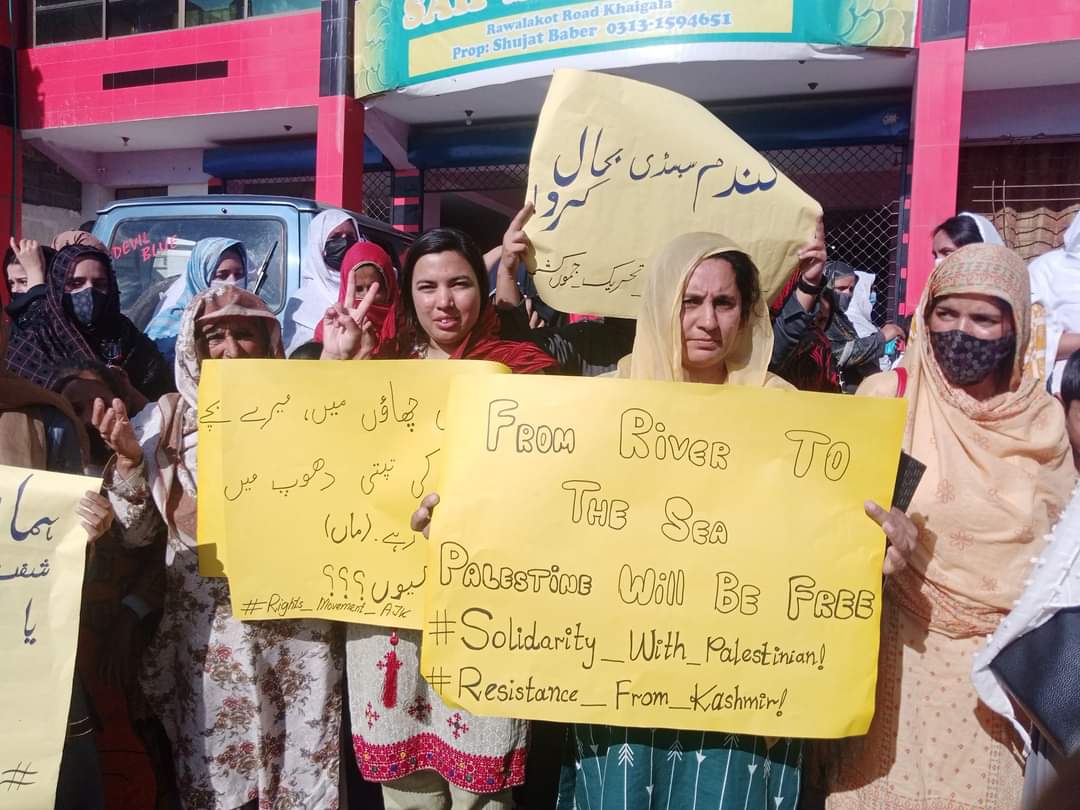 Rawalakot Road Khaigala
Prop: Shujat Baber 0313-1594651
گندم سبسڈی بحال
کرو
تحریک جموں کش
DEVIL
BLUE
چھاؤں میں، میرے بچے
کی تپتی دھوپ میں
رہے. (ماں)
کیوں؟؟؟
#Rights_Movement_AJK
From River To
The Sea
Palestine Will Be Free
#Solidarity_With_Palestinian!
#Resistance_From_Kashmir!
ہما
شفت
یا
#